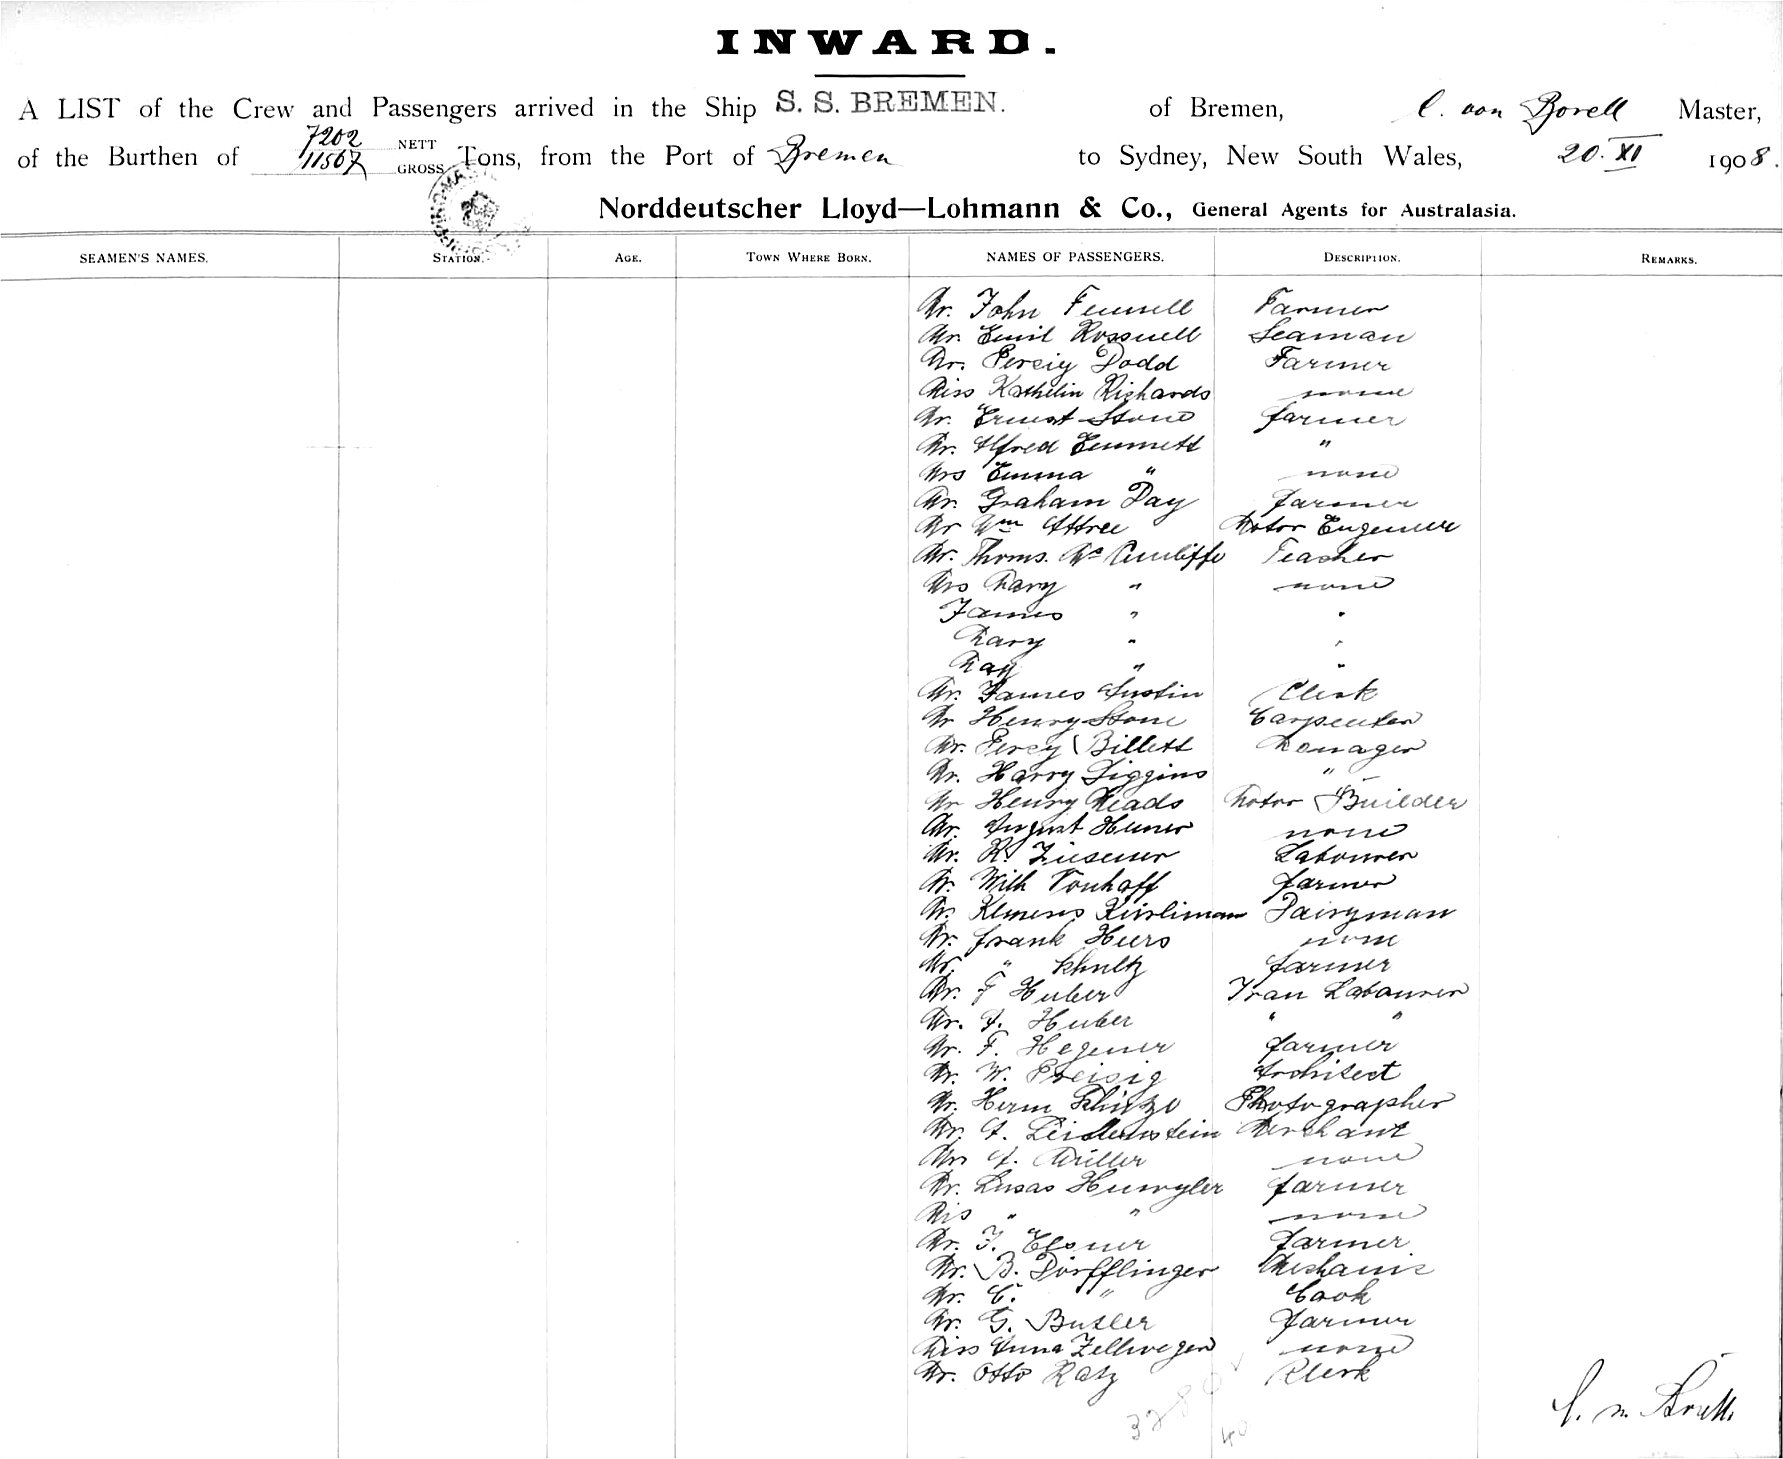 INWARD.
A LIST of the Crew and Passengers arrived in the Ship S. S. BREMEN. of Bremen, C. von Borell Master,
7202
of the Burthen of 11567 NETT GROSS Tons, from the Port of Bremen to Sydney, New South Wales, 20. XI 1908.
Norddeutscher Lloyd—Lohmann & Co., General Agents for Australasia.
SEAMEN'S NAMES. STATION. AGE. TOWN WHERE BORN. NAMES OF PASSENGERS. DESCRIPTION. REMARKS.
Mr. John Fennell Farmer
Mr. Emil Rossnell Seaman
Mr. Perciy Dodd Farmer
Miss Kathelin Richards none
Mr. Ernest Stone farmer
Mr. Alfred Emmett "
Mrs Emma " none
Mr. Graham Day farmer
Mr Wm Attree Motor Engeneer
Mr. Thoms. Mc Cunliffe Teacher
Mrs Mary " none
James " "
Mary " "
May " "
Mr. James Austin Clerk
Mr Henry Stone Carpenter
Mr. Percy Billett Manager
Mr. Harry Diggins "
Mr Henry Meads Motor Builder
Mr. August Huner none
Mr. R. Ziesener Labourer
Mr. Wilh Vonhoff farmer
Mr. Klemens Dairyman
Mr. frank Heers none
Mr. " Schultz farmer
Mr. F Huber Iran Labourer
Mr. A. Huber " "
Mr. F. Hegener farmer
Mr. W. Preisig Architect
Mr. Herm Schütze Photographer
Mr. A. Merchant
A. Müller none
Mr. Lucas Huwyler farmer
Mis " " none
Mr. J. Elsner farmer
Mr. B. Dörfflinger Mechanic
Mr. C. " Cook
Mr. G. Butler farmer
Miss Anna Zellweger none
Mr. Otto Ratz Klerk
40